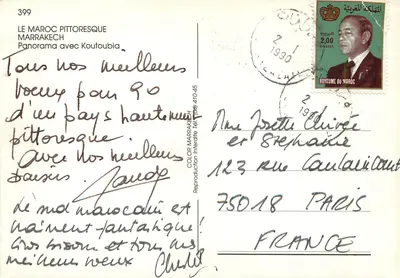 399
LE MAROC PITTORESQUE
MARRAKECH
Panorama avec Koutoubia
Tous nos meilleurs
voeux pour 90
d'un pays hautement
pittoresque.
Avec nos meilleurs
baisers.
Le sud marocain est
vraiment fantastique!
Gros bisous et tous nos
meilleurs voeux
COLOR MARRAKECH
Reproduction interdite Tél.
المملكة المغربية
2,00
ROYAUME DU MAROC
2 1
1990
2
1990
Mme Josette
et Stéphanie
123 rue Caulaincourt
75018 PARIS
FRANCE